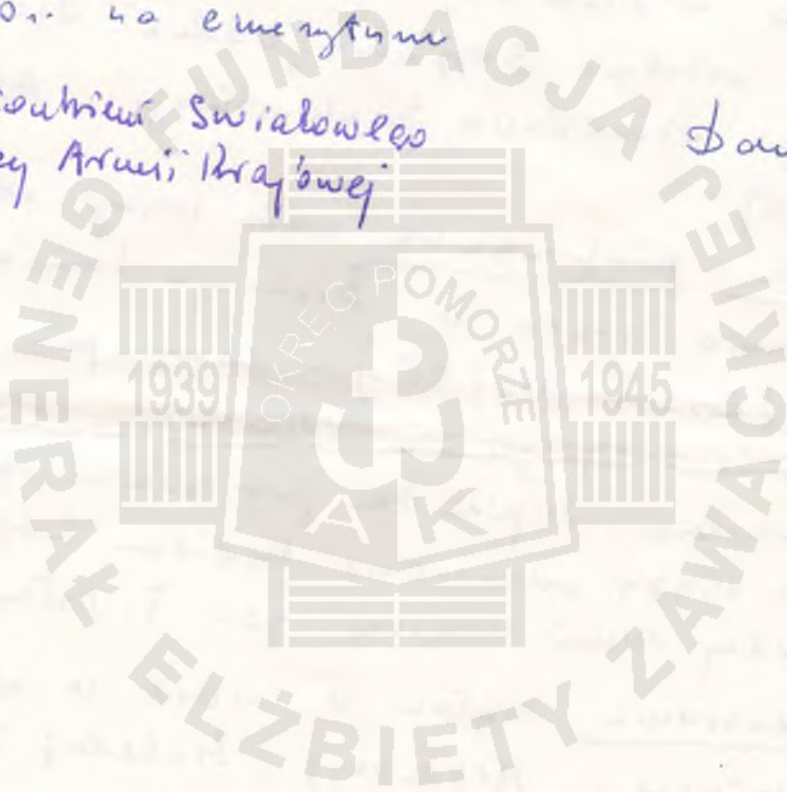 na emeryturę
Światowego
Armii Krajowej
FUNDACJA GENERAŁ ELŻBIETY ZAWACKIEJ
OKRĘG POMORZE
1939 1945
A K